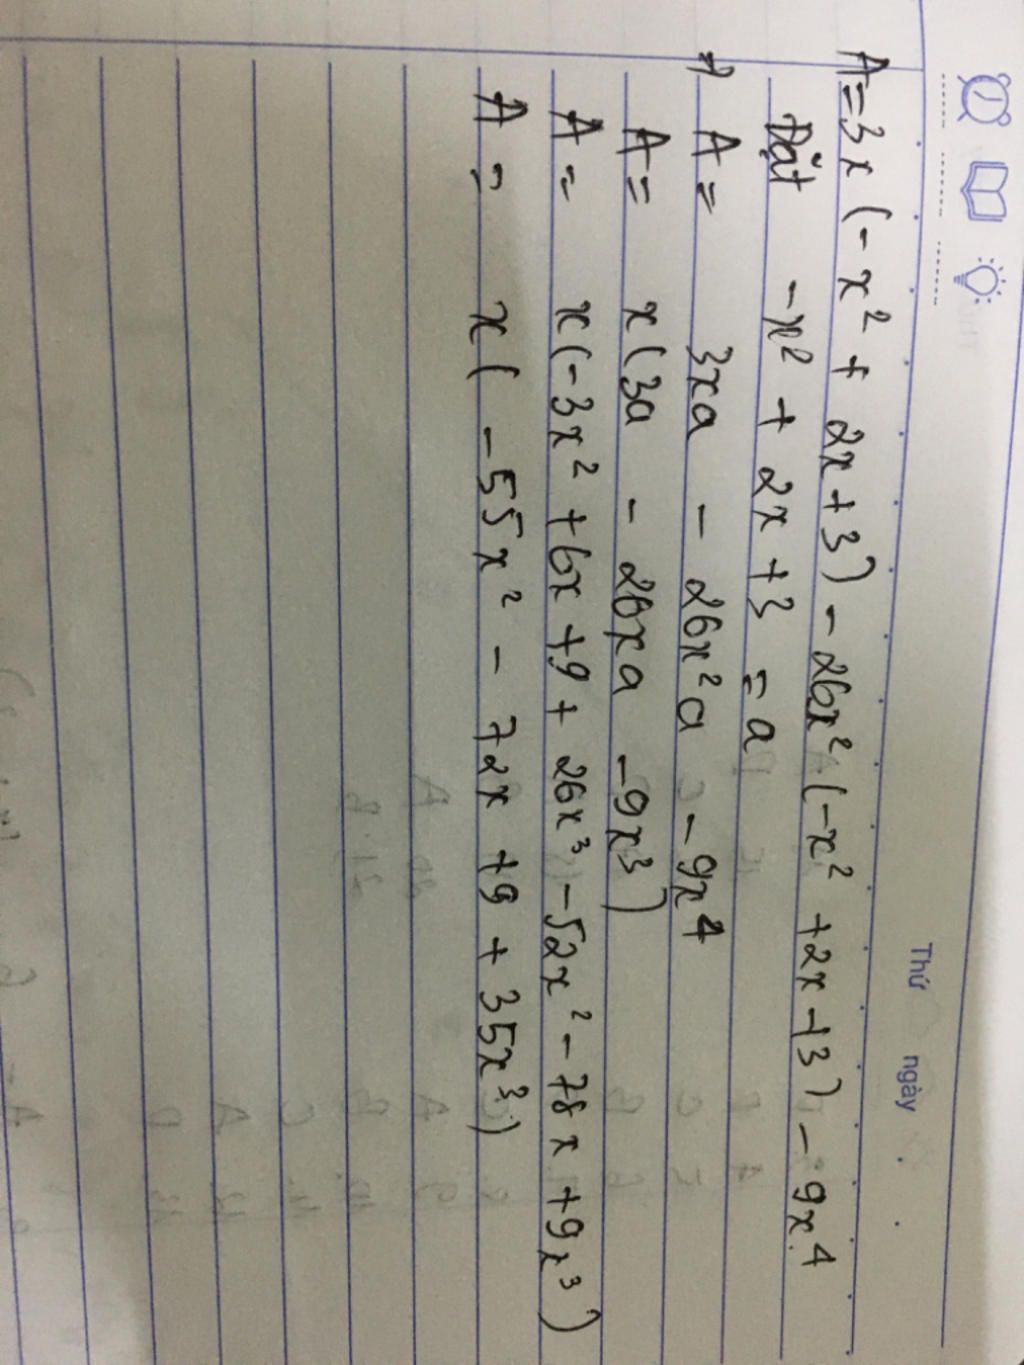 Thứ ngày
A = 3x (-x² + 2x + 3) - 26x² (-x² + 2x + 3) - 9x⁴
Đặt -x² + 2x + 3 = a
A = 3xa - 26x²a - 9x⁴
A = x(3a - 26xa - 9x³)
A = x(-3x² + 6x + 9 + 26x³ - 52x² - 78x + 9x³)
A = x( -55x² - 72x + 9 + 35x³)